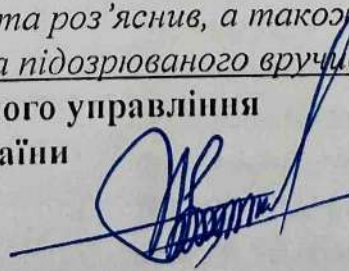 та роз’яснив, а також
підозрюваного вручи
ого управління
аїни